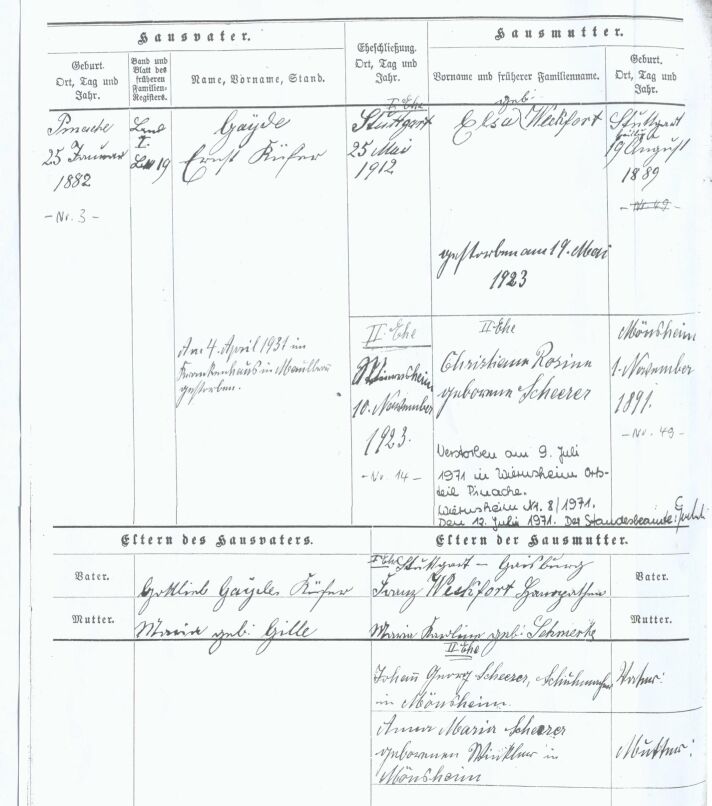 Hausvater.
Geburt.
Ort, Tag und
Jahr.
Band und
Blatt des
früheren
Familien-
Registers.
Name, Vorname, Stand.
Eheschließung.
Ort, Tag und
Jahr.
Hausmutter.
Vorname und früherer Familienname.
Geburt.
Ort, Tag und
Jahr.
Pinache
25 Januar
1882
- Nr. 3 -
Band
I.
19
Gayde
Ernst Küfer
I. Ehe
Stuttgart
25 Mai
1912
geb.
Elsa Weckfort
Stuttgart
19 August
1889
- Nr. 49 -
gestorben am 19. Mai
1923
Am 4. April 1931 im
Krankenhaus in Maulbronn
gestorben.
II. Ehe
Wiernsheim
10. November
1923.
- No. 14 -
II. Ehe
Christiane Rosine
geborene Scheerer
Mönsheim
1. November
1891.
- Nr. 49 -
Verstorben am 9. Juli
1971 in Wiernsheim Orts-
teil Pinache.
Wiernsheim Nr. 8/1971.
Den 12. Julia 1971. Der Standesbeamte:
Eltern des Hausvaters.
Vater.
Gottlieb Gayde, Küfer
Mutter.
Maria geb. Gille
Eltern der Hausmutter.
I. Ehe Stuttgart - Gaisburg
Franz Weckfort
Vater.
Maria Karline geb. Schmerke
Mutter.
II. Ehe
Johann Georg Scheerer, Schuhmacher
in Mönsheim
Vater:
Anna Maria Scheerer
geborenen Winkler in
Mönsheim
Mutter: